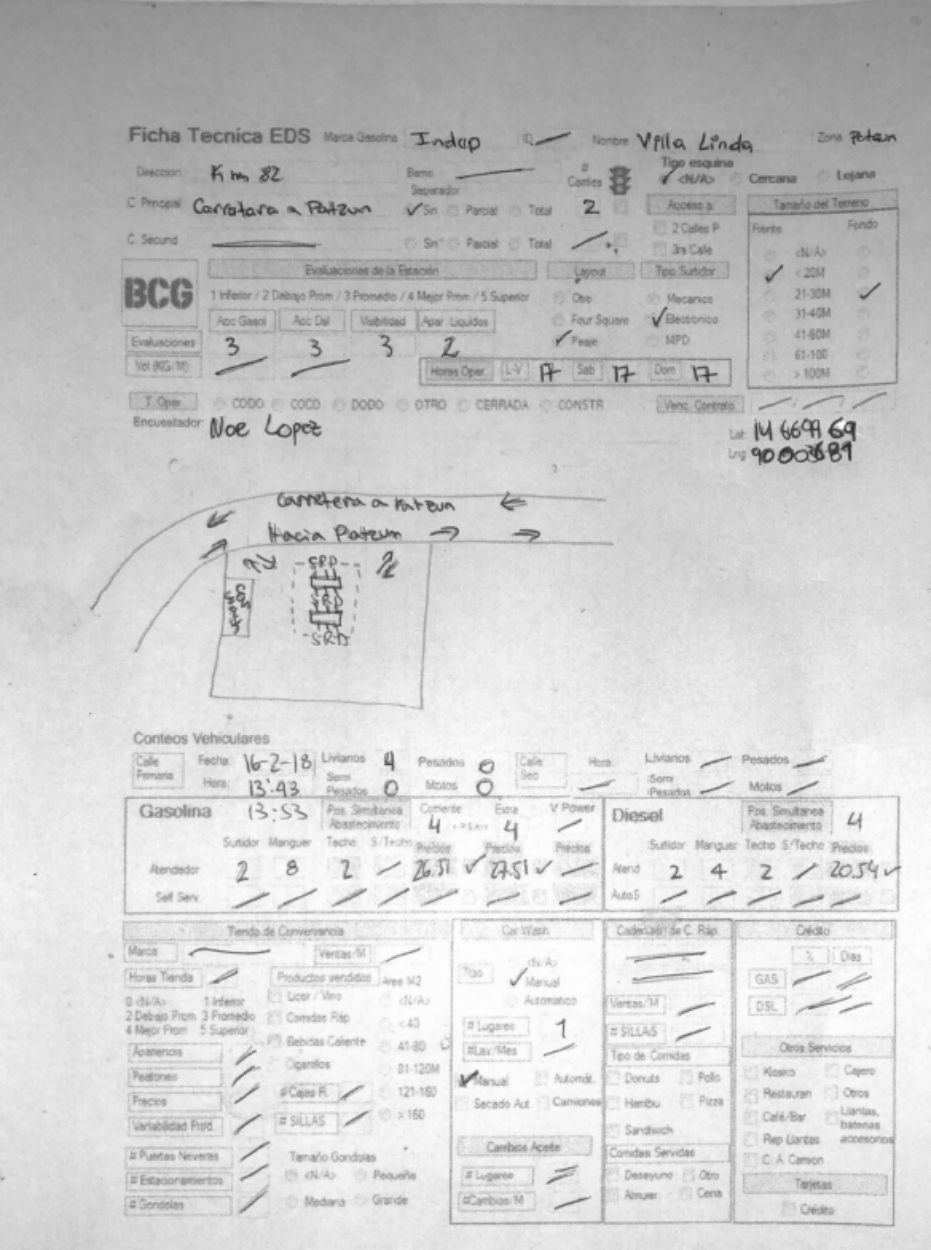 Ficha Tecnica EDS Marca Gasolina Indap ID Nombre Villa Linda Zona Patzun
Direccion Km 82 Barrio # Carriles Tipo esquina <N/A> Cercana Lejana
Separador
C Principal Carratara a Patzun Sin Parcial Total 2 Acceso a Tamaño del Terreno
2 Calles P Frente Fondo
C Secund Sin Parcial Total 3ra Calle <N/A>
BCG Evaluaciones de la Estación Layout Tipo Surtidor < 20M
1 Inferior / 2 Debajo Prom / 3 Promedio / 4 Mejor Prom / 5 Superior Otro Mecanico 21-30M
Acc Gasol Acc Dsl Visibilidad Apar Liquidos Four Square Electronico 31-40M
Evaluaciones 3 3 3 2 Peaje MPD 41-60M
Vol (KG/M) Horas Oper L-V 17 Sab 17 Dom 17 61-100
> 100M
T. Oper CODO COCO DODO OTRO CERRADA CONSTR Venc. Contrato
Encuestador Noe Lopez Lat 14 6699 69
Lng
Carretera a Patzun
Hacia Patzun
SRD
SRD
Conteos Vehiculares
Calle Primaria Fecha: 16-2-18 Livianos 4 Pesados 0 Calle Sec Hora: Livianos Pesados
Hora: 13:43 Semi Pesados 0 Motos 0 Semi Pesados Motos
Gasolina 13:53 Pos. Simultanea Abastecimiento Corriente 4 Extra 4 V Power Diesel Pos. Simultanea Abastecimiento 4
Surtidor Manguer Techo S/Techo Precios Precios Precios Surtidor Manguer Techo S/Techo Precios
Atendedor 2 8 2 26.51 27.51 Atend 2 4 2 20.54
Self Serv. Auto S
Tienda de Convenencia Car Wash Cadena en de C. Ráp. Crédito
Marca Ventas/M <N/A> % Dias
Horas Tienda Productos vendidos Area M2 Tipo Manual GAS
0 <N/A> 1 Inferior Licor / Vino <N/A> Automatico Ventas/M DSL
2 Debajo Prom 3 Promedio Comidas Ráp < 40 # Lugares 1 # SILLAS
4 Mejor Prom 5 Superior Bebidas Caliente 41-80 #Lav/Mes Tipo de Comidas Otros Servicios
Apariencia Cigarrillos 81-120M Manual Automát. Donuts Pollo Kiosko Cajero
Peatones # Cajas R. 121-160 Secado Aut. Camiones Hambu Pizza Restauran Otros
Precios # SILLAS > 160 Sandwich Café/Bar Llantas, baterias accesorios
Variabilidad Prod. Cambios Aceite Comidas Servidas Rep Llantas
# Puertas Neveras Tamaño Gondolas # Lugares Desayuno Otro C. A. Camion
# Estacionamientos <N/A> Pequeña #Cambios/M Almuer. Cena Tarjetas
# Gondolas Mediana Grande Crédito